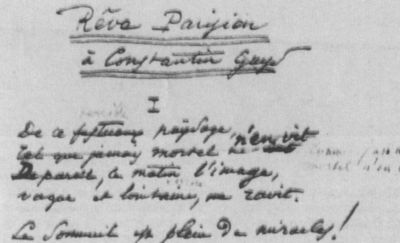 Rêve Parisien
à Constantin Guys
I
De ce fastueux paysage,
Tel que jamais mortel n'en vit
Pareil, ce matin l'image,
vague et lointaine, me ravit.
Le Sommeil est plein de miracles!